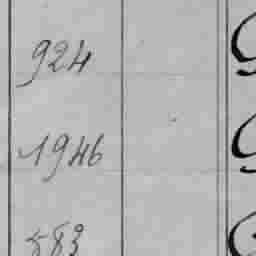 924
1946
583